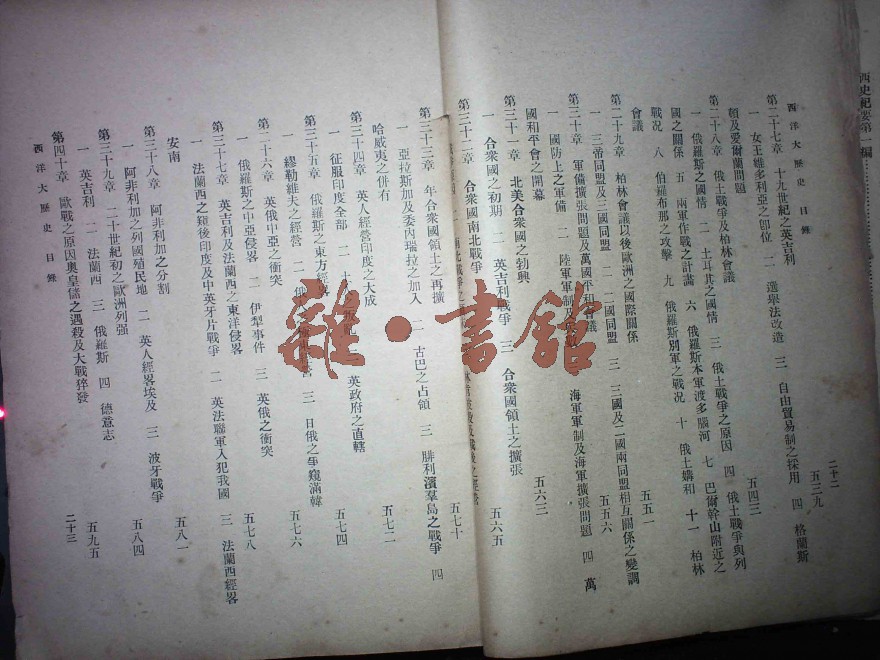 西史紀要第一編
西洋大歷史　目錄　二十二
第二十七章　十九世紀之英吉利　五三九
一　女王維多利亞之卽位　二　選舉法改造　三　自由貿易制之採用　四　格蘭斯
頓及愛爾蘭問題
第二十八章　俄土戰爭及柏林會議　五四三
一　俄羅斯之國情　二　土耳其之國情　三　俄土戰爭之原因　四　俄土戰爭與列
國之關係　五　兩軍作戰之計畫　六　俄羅斯本軍渡多腦河　七　巴爾幹山附近之
戰况　八　伯羅布那之攻擊　九　俄羅斯別軍之戰况　十　俄土媾和　十一　柏林
會議
第二十九章　柏林會議以後歐洲之國際關係　五五一
一　三帝同盟及三國同盟　二　二國同盟　三　三國及二國兩同盟相互關係之變調
第三十章　軍備擴張問題及萬國平和會議　五五六
一　國防上之軍備　二　陸軍軍制及　海軍軍制及海軍擴張問題　四　萬
國和平會之開幕
第三十一章　北美合衆國之勃興　五六三
一　合衆國之初期　二　英吉利戰爭　三　合衆國領土之擴張
第三十二章　合衆國南北戰爭　五六五
南北戰爭之
第三十三章　年合衆國領土之再擴　五七十
一　亞拉斯加及委內瑞拉之加入　二　古巴之占領　三　腓利濱羣島之戰爭　四
哈威夷之併有
第三十四章　英人經營印度之大成　五七二
一　征服印度全部　二　英政府之直轄
第三十五章　俄羅斯之東方經　五七四
一　繆勒維夫之經營　二　三　日俄之爭窺滿韓
第三十六章　英俄中亞之衝突　五七六
一　俄羅斯之中亞侵畧　二　伊犁事件　三　英俄之衝突
第三十七章　英吉利及法蘭西之東洋侵畧　五七八
一　法蘭西之窺後印度及中英牙片戰爭　二　英法聯軍入犯我國　三　法蘭西經畧
安南
第三十八章　阿非利加之分割　五八一
一　阿非利加之列國殖民地　二　英人經畧埃及　三　波牙戰爭
第三十九章　二十世紀初之歐洲列强　五八四
一　英吉利　二　法蘭西　三　俄羅斯　四　德意志
第四十章　歐戰之原因奧皇儲之遇殺及大戰猝發　五九五
西洋大歷史　目錄　二十三
雜·書館